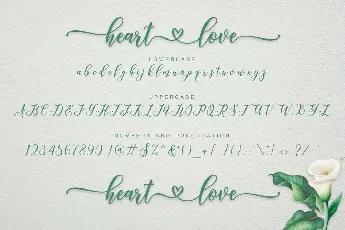 heart love
LOWERCASE
abcdefghijklmnopqrstuvwxyz
UPPERCASE
ABCDEFGHIJKLMNOPQRSTUVWXYZ
NUMBERS AND PUNCTUATION
heart love